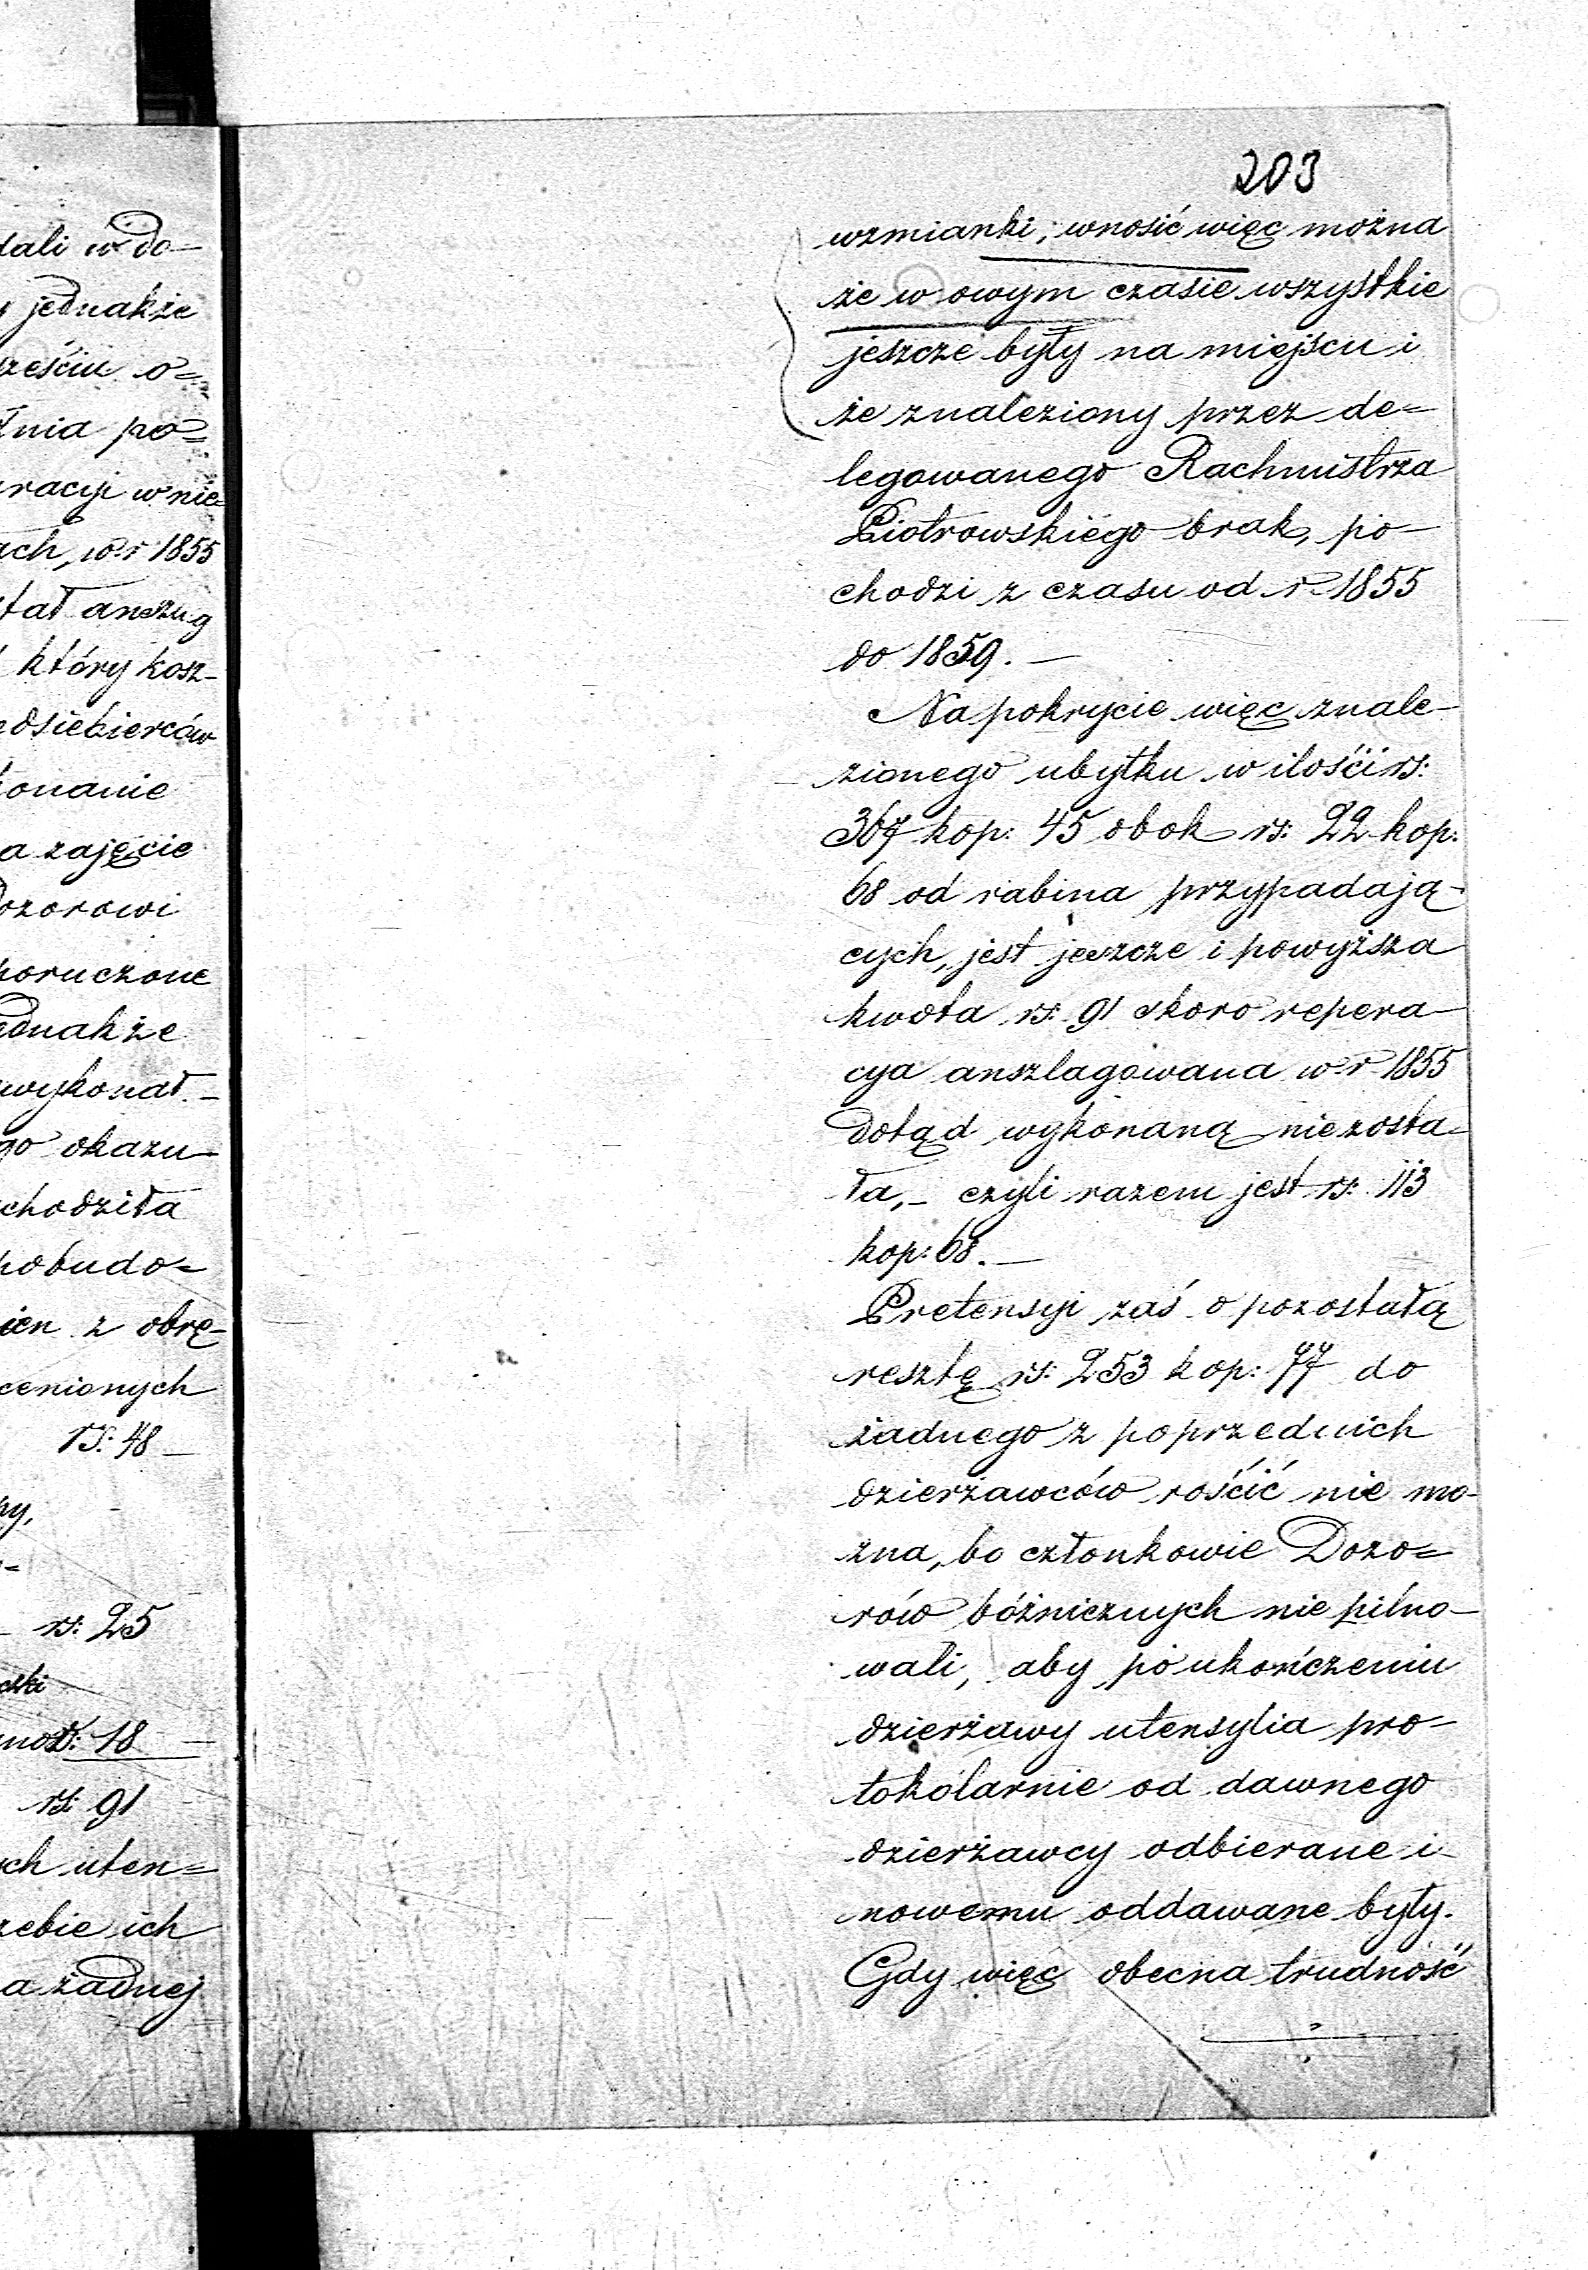 dali w do-
jednakże
ześciu o=
łnia po=
racyi w nie-
ach, w r 1855
tał anszlag
który kosz-
dsiebierców
konanie
a zajęcie
Dozorowi
poruczone
ednakże
wykonał. -
go okazu-
chodziła
pobudo=
ien z obrę-
cenionych
rs: 48 -
py,
- rs: 25
ski
18 -
rs: 91
ch uten=
zebie ich
a żadnej
203
wzmianki, wnosić więc można
że w owym czasie wszystkie
jeszcze były na miejscu i
że znaleziony przez de=
legowanego Rachmistrza
Piotrowskiego brak, po-
chodzi z czasu od r 1855
do 1859. -
Na pokrycie więc znale-
zionego ubytku w ilości rs:
367 kop: 45 obok rs: 22 kop:
68 od rabina przypadają-
cych, jest jeszcze i powyższa
kwota rs: 91 skoro repera-
cya anszlagowana w r 1855
dotąd wykonaną nie zosta-
ła, - czyli razem jest rs: 113
kop: 68. -
Pretensyi zaś o pozostałą
resztę rs: 253 kop: 77 do
żadnego z poprzednich
dzierżawców rościć nie mo-
żna, bo członkowie Dozo=
rów bóżniczych nie pilno-
wali, aby po ukończeniu
dzierżawy utensylia pro-
tokólarnie od dawnego
dzierżawcy odbierane i
nowemu oddawane były.
Gdy więc obecna trudność